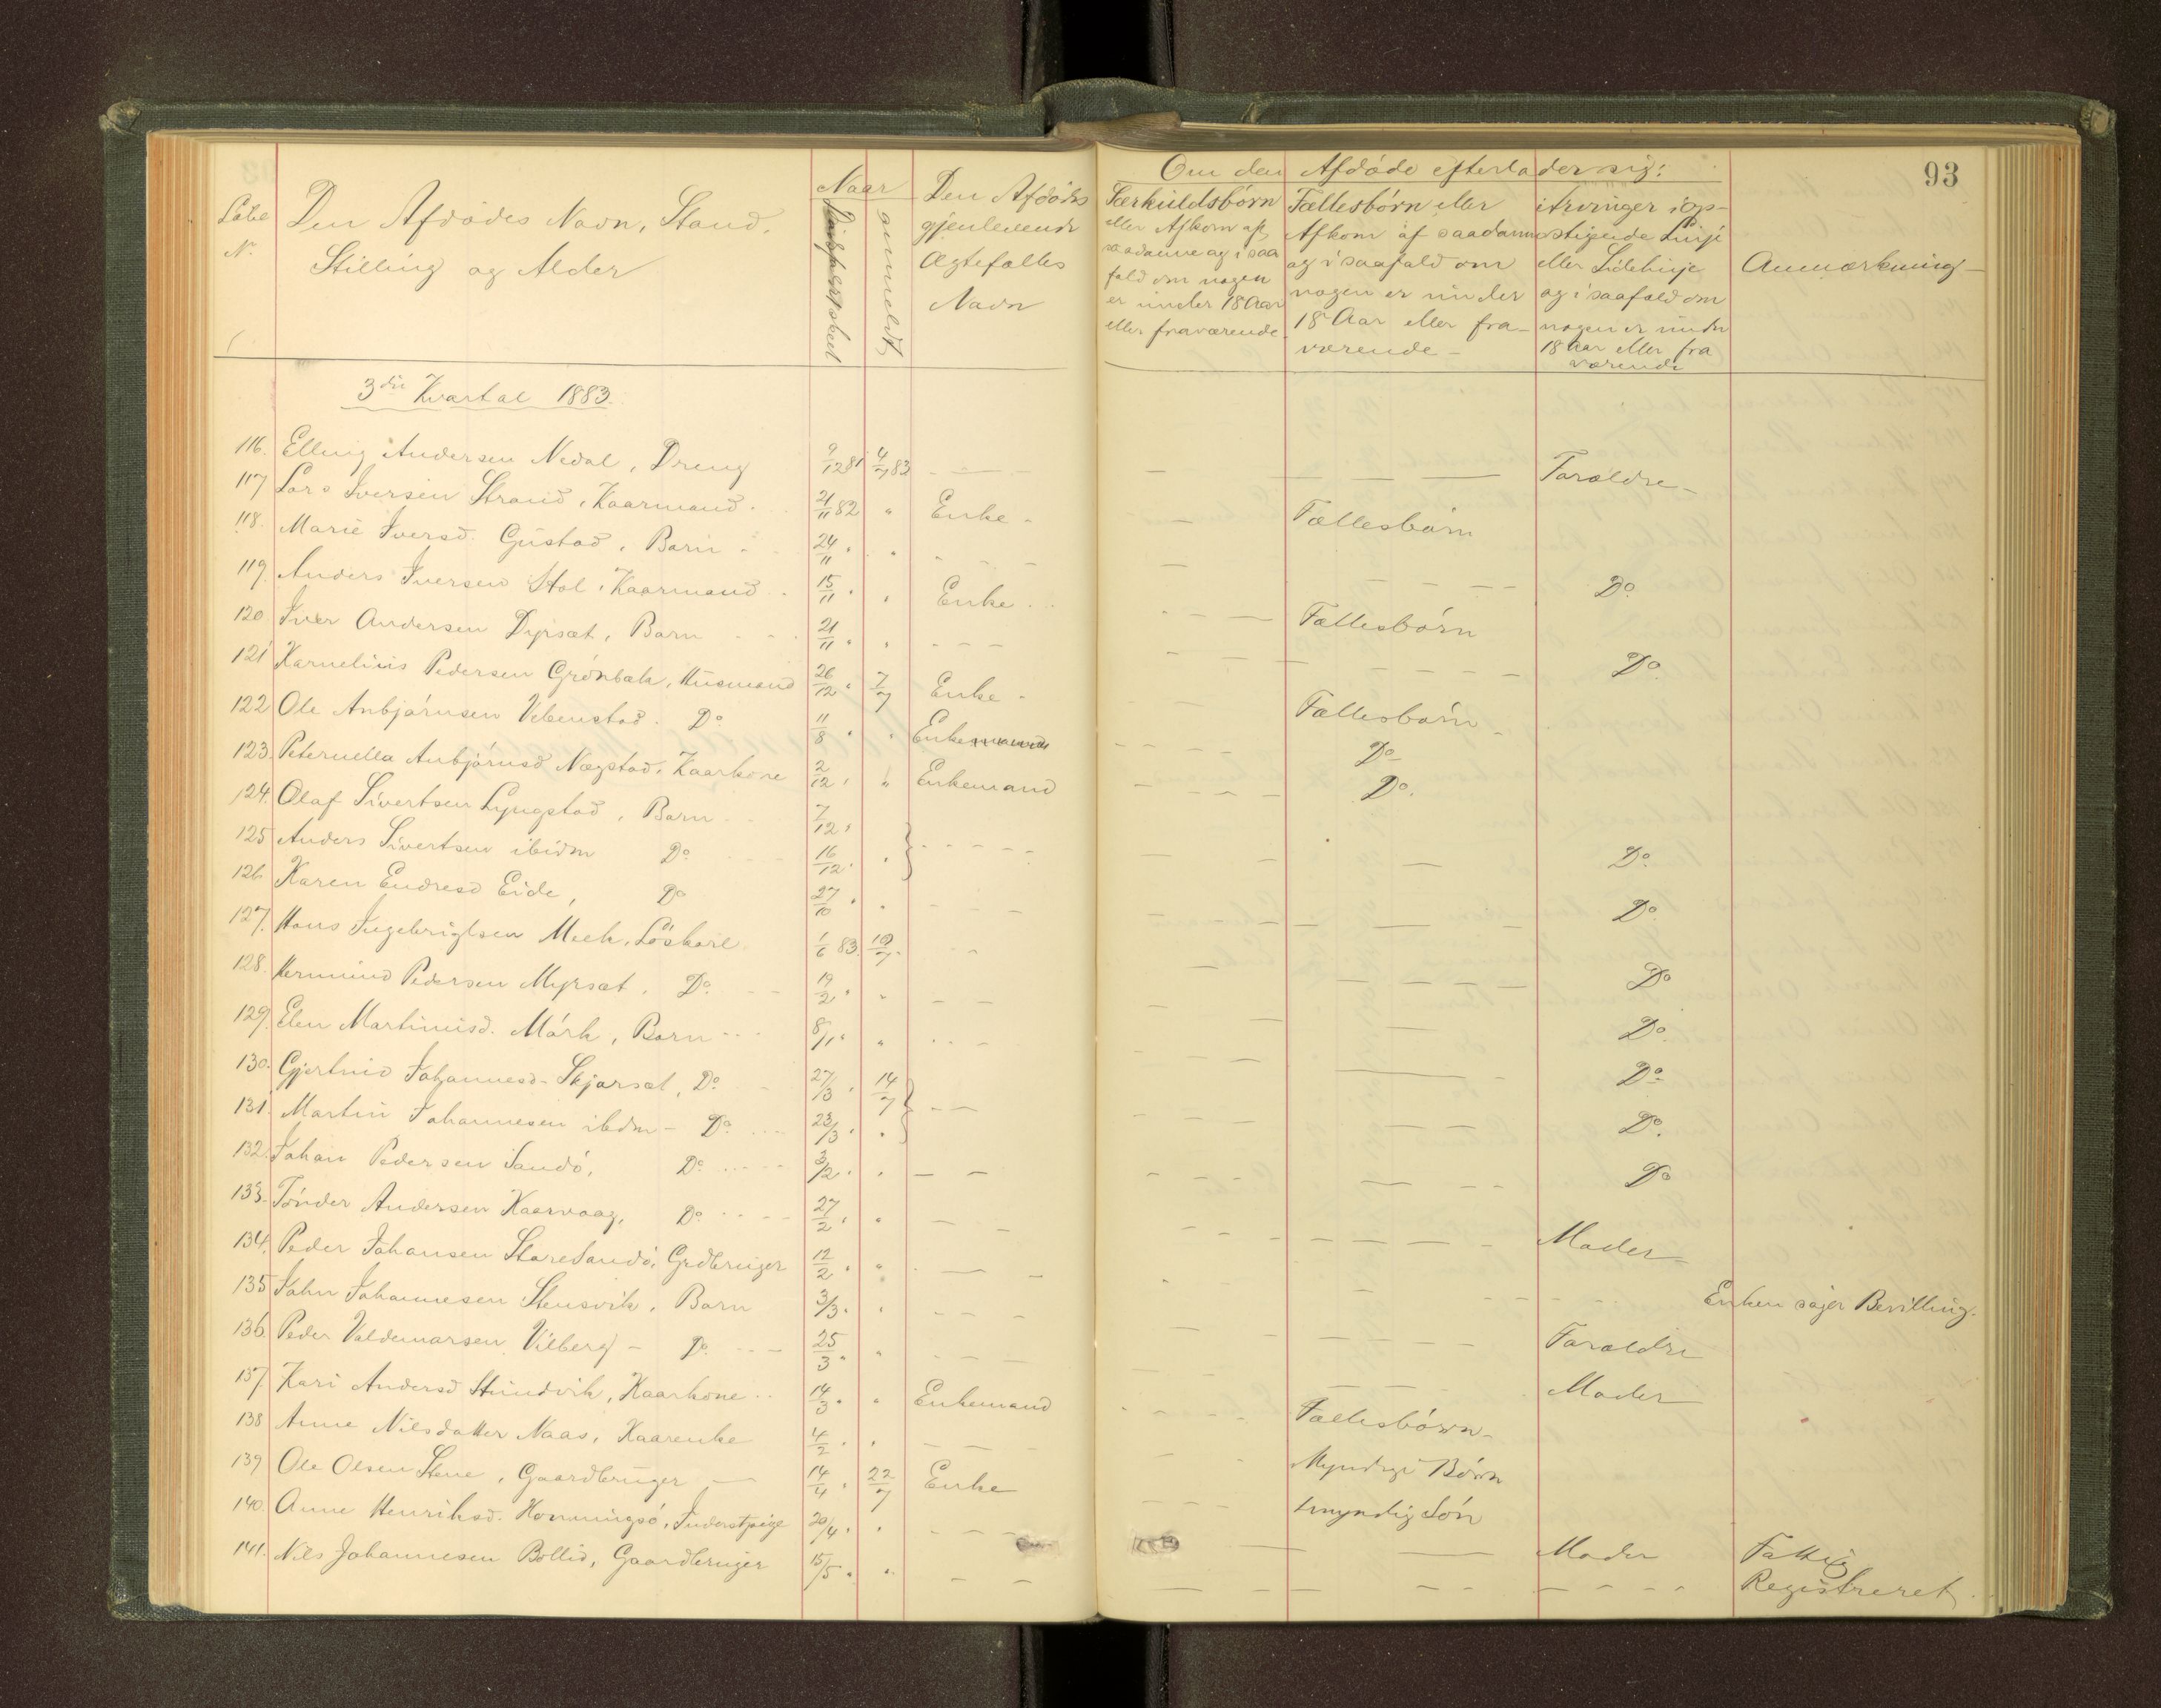 93
Løbe N.
Den Afdødes Navn, Stand, Stilling og Alder
Naar
Dødsfaldet skeet
anmeldt
Den Afdødes gjenlevende Ægtefælles Navn
Om den Afdøde efterlader sig:
Særkuldsbørn eller Afkom af saadanne og i saa fald om nogen er under 18 Aar eller fraværende
Fællesbørn eller Afkom af saadanne og i saafald om nogen er under 18 Aar eller fraværende
Arvinger i opstigende Linje eller Sidelinje og i saafald om nogen er under 18 Aar eller fraværende
Anmærkning
3die Kvartal 1883.
116. Elling Andersen Nedal, Dreng 9/12 81 4/7 83 Forældre
117 Lars Iversen Strand, Kaarmand 21/11 82 " Enke Fællesbørn
118. Marie Iversd. Gustad, Barn 24/11 " " Do
119. Anders Iversen Hol, Kaarmand 15/11 " " Enke Fællesbørn
120. Iver Andersen Dyrsæt, Barn 21/11 " " Do
121 Karnelius Pedersen Grønbæk, Husmand 26/12 " 7/7 Enke Fællesbørn
122 Ole Anbjørnsen Vebenstad Do 11/8 " " Enke Do
123. Peternella Anbjørnsd Nægstad, Kaarkone 2/12 " " Enkemand Do
124. Olaf Sivertsen Lyngstad, Barn 7/12 "
125 Anders Sivertsen ibidm Do 16/12 " " Do
126 Karen Endresd Eide, Do 27/10 " " Do
127. Hans Ingebrigtsen Meek, Løskarl 1/6 83. 10/7 Do
128. Hermund Pedersen Myrsæt, Do 19/2 " " Do
129. Elen Martinusd. Mørk, Barn 8/1 " " Do
130. Gjertrud Johannesd. Skjørsæt, Do 27/3 " 14/7
131. Martin Johannesen ibdm Do 23/3 " " Do
132. Johan Pedersen Sandø, Do 3/2 " " Do
133. Tønder Andersen Kaarvaag, Do 27/2 " " Moder
134. Peder Johansen Store Sandø, Grdbruger 12/2 " " Enken søger Bevilling.
135 John Johannesen Stensvik, Barn 3/3 " " Forældre
136. Peder Valdemarsen Vilberg Do 25/3 " " Moder
137. Kari Andersd Stundvik, Kaarkone 14/3 " " Enkemand Fællesbørn
138 Anne Nilsdatter Naas, Kaarenke 4/2 " " Myndige Børn
139 Ole Olsen Stene, Gaardbruger 14/4 " 22/7 Enke 1 myndig Søn
140. Anne Henriksd. Honningsø, Inderstpige 20/4 " " Moder Fattig
141. Nils Johannesen Bollid, Gaardbruger 15/5 " " Registreret